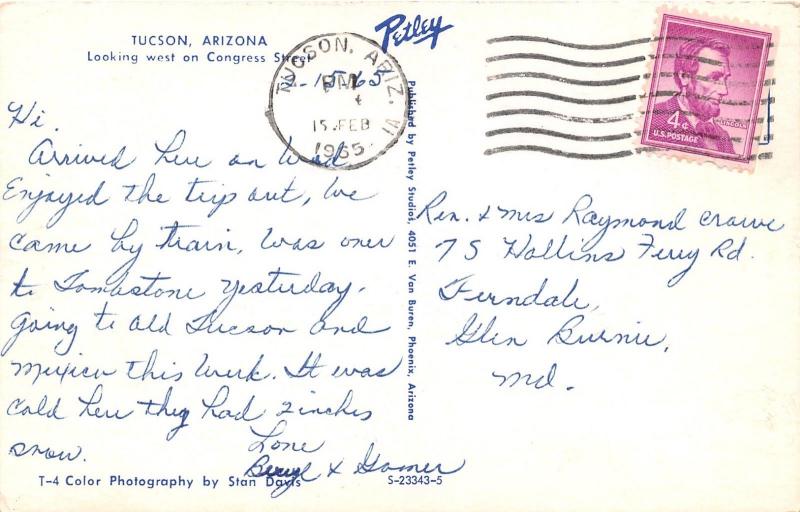 TUCSON, ARIZONA
Looking west on Congress Street
Petley
TUCSON, ARIZ.
PM
15 FEB
1965
1A
4¢
LINCOLN
U.S. POSTAGE
2-15-65
Hi.
Arrived here on Wed
Enjoyed the trip out, We
came by train, Was over
to Tombstone yesterday.
Going to Old Tucson and
Mexico this week. It was
cold here they had 2 inches
snow.
Love
Beryl & Gomer
Published by Petley Studios, 4051 E. Van Buren, Phoenix, Arizona
Rev. & Mrs Raymond Crowe
7 S Hollins Ferry Rd.
Ferndale,
Glen Burnie,
Md.
T-4 Color Photography by Stan Davis
S-23343-5